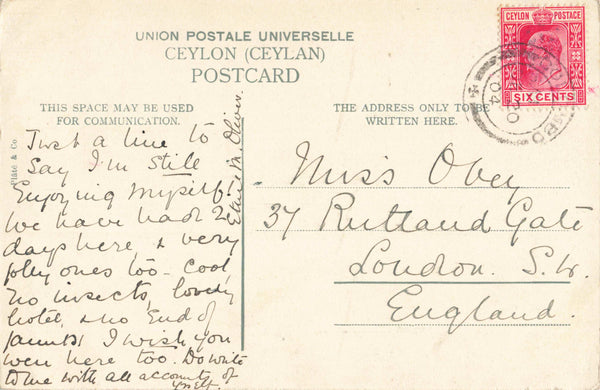 UNION POSTALE UNIVERSELLE
CEYLON (CEYLAN)
POSTCARD
CEYLON POSTAGE
SIX CENTS
THIS SPACE MAY BE USED
FOR COMMUNICATION.
THE ADDRESS ONLY TO BE
WRITTEN HERE.
Plâté & Co
Just a line to
say I'm still
Enjoying myself!
We have had 2
days here & very
jolly ones too - cool,
no insects, lovely
hotel, & no end of
jaunts! I wish you
were here too. Do write
to me with all accounts of
yrself.
M. Oliver.
Miss Obey
37 Rutland Gate
London. S.W.
England.